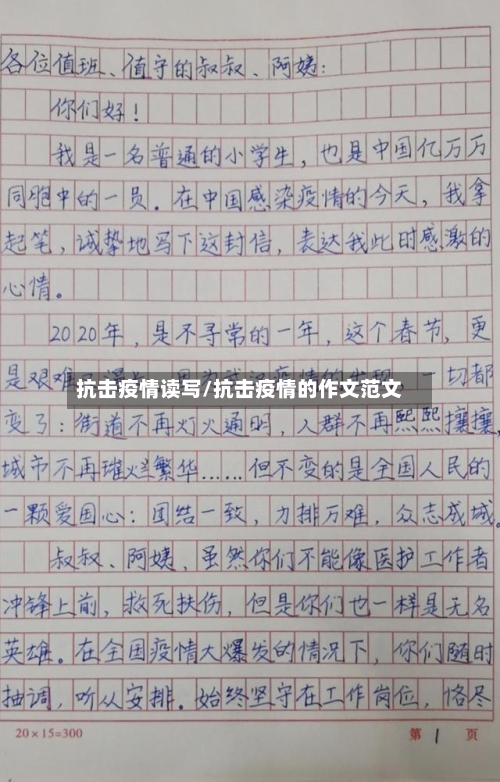 各位值班、值守的叔叔、阿姨：
你们好！
我是一名普通的小学生，也是中国亿万万
同胞中的一员。在中国感染疫情的今天，我拿
起笔，诚挚地写下这封信，表达我此时感激的
心情。
2020年，是不寻常的一年，这个春节，更
是艰难
一切都
抗击疫情读写/抗击疫情的作文范文
变了：街道不再灯火通明，人群不再熙熙攘攘，
城市不再璀烂繁华……但不变的是全国人民的
一颗爱国心：团结一致，力排万难，众志成城。
叔叔、阿姨，虽然你们不能像医护工作者
冲锋上前，救死扶伤，但是你们也一样是无名
英雄。在全国疫情大爆发的情况下，你们随时
抽调，听从安排。始终坚守在工作岗位，恪尽
20×15=300 第 1 页